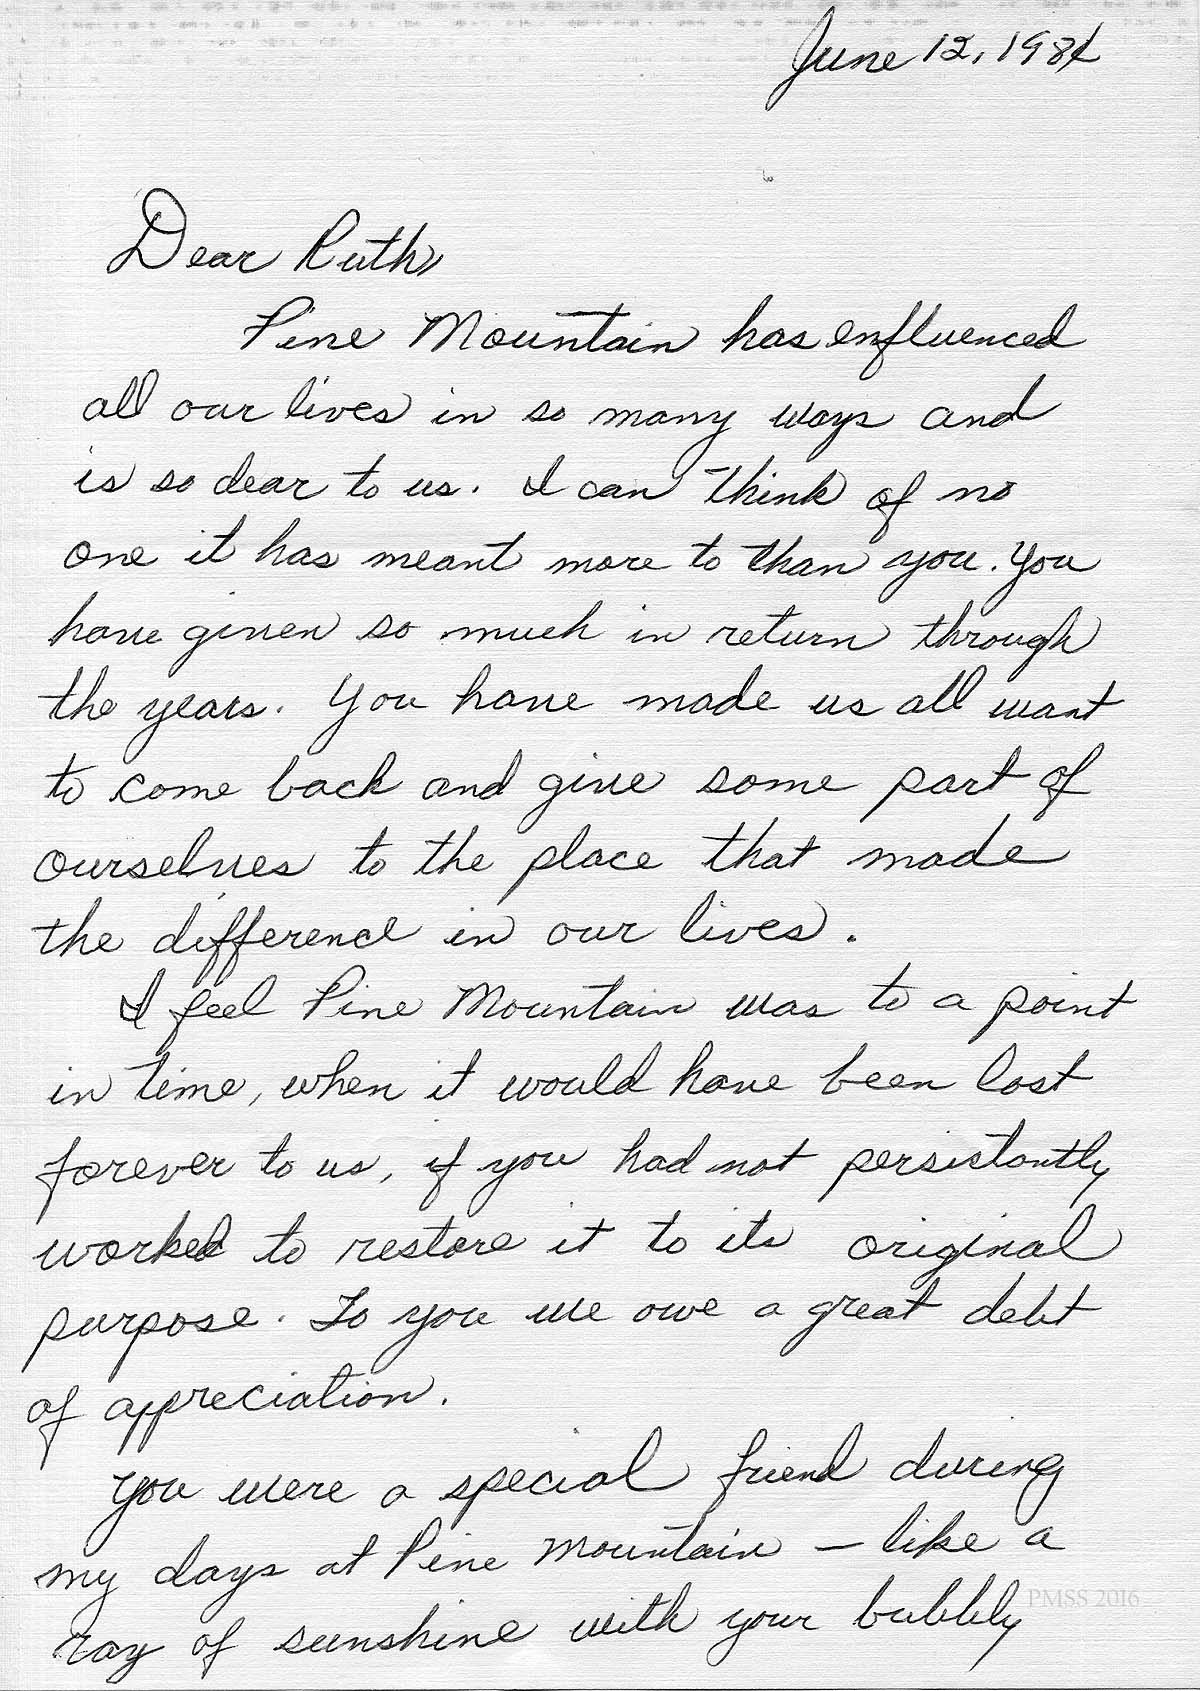 June 12, 1984
Dear Ruth,
Pine Mountain has enfluenced
all our lives in so many ways and
is so dear to us. I can think of no
one it has meant more to than you. You
have given so much in return through
the years. You have made us all want
to come back and give some part of
ourselves to the place that made
the difference in our lives.
I feel Pine Mountain was to a point
in time, when it would have been lost
forever to us, if you had not persistantly
worked to restore it to its original
purpose. To you we owe a great debt
of appreciation.
You were a special friend during
my days at Pine Mountain — like a
ray of sunshine with your bubbly
PMSS 2016